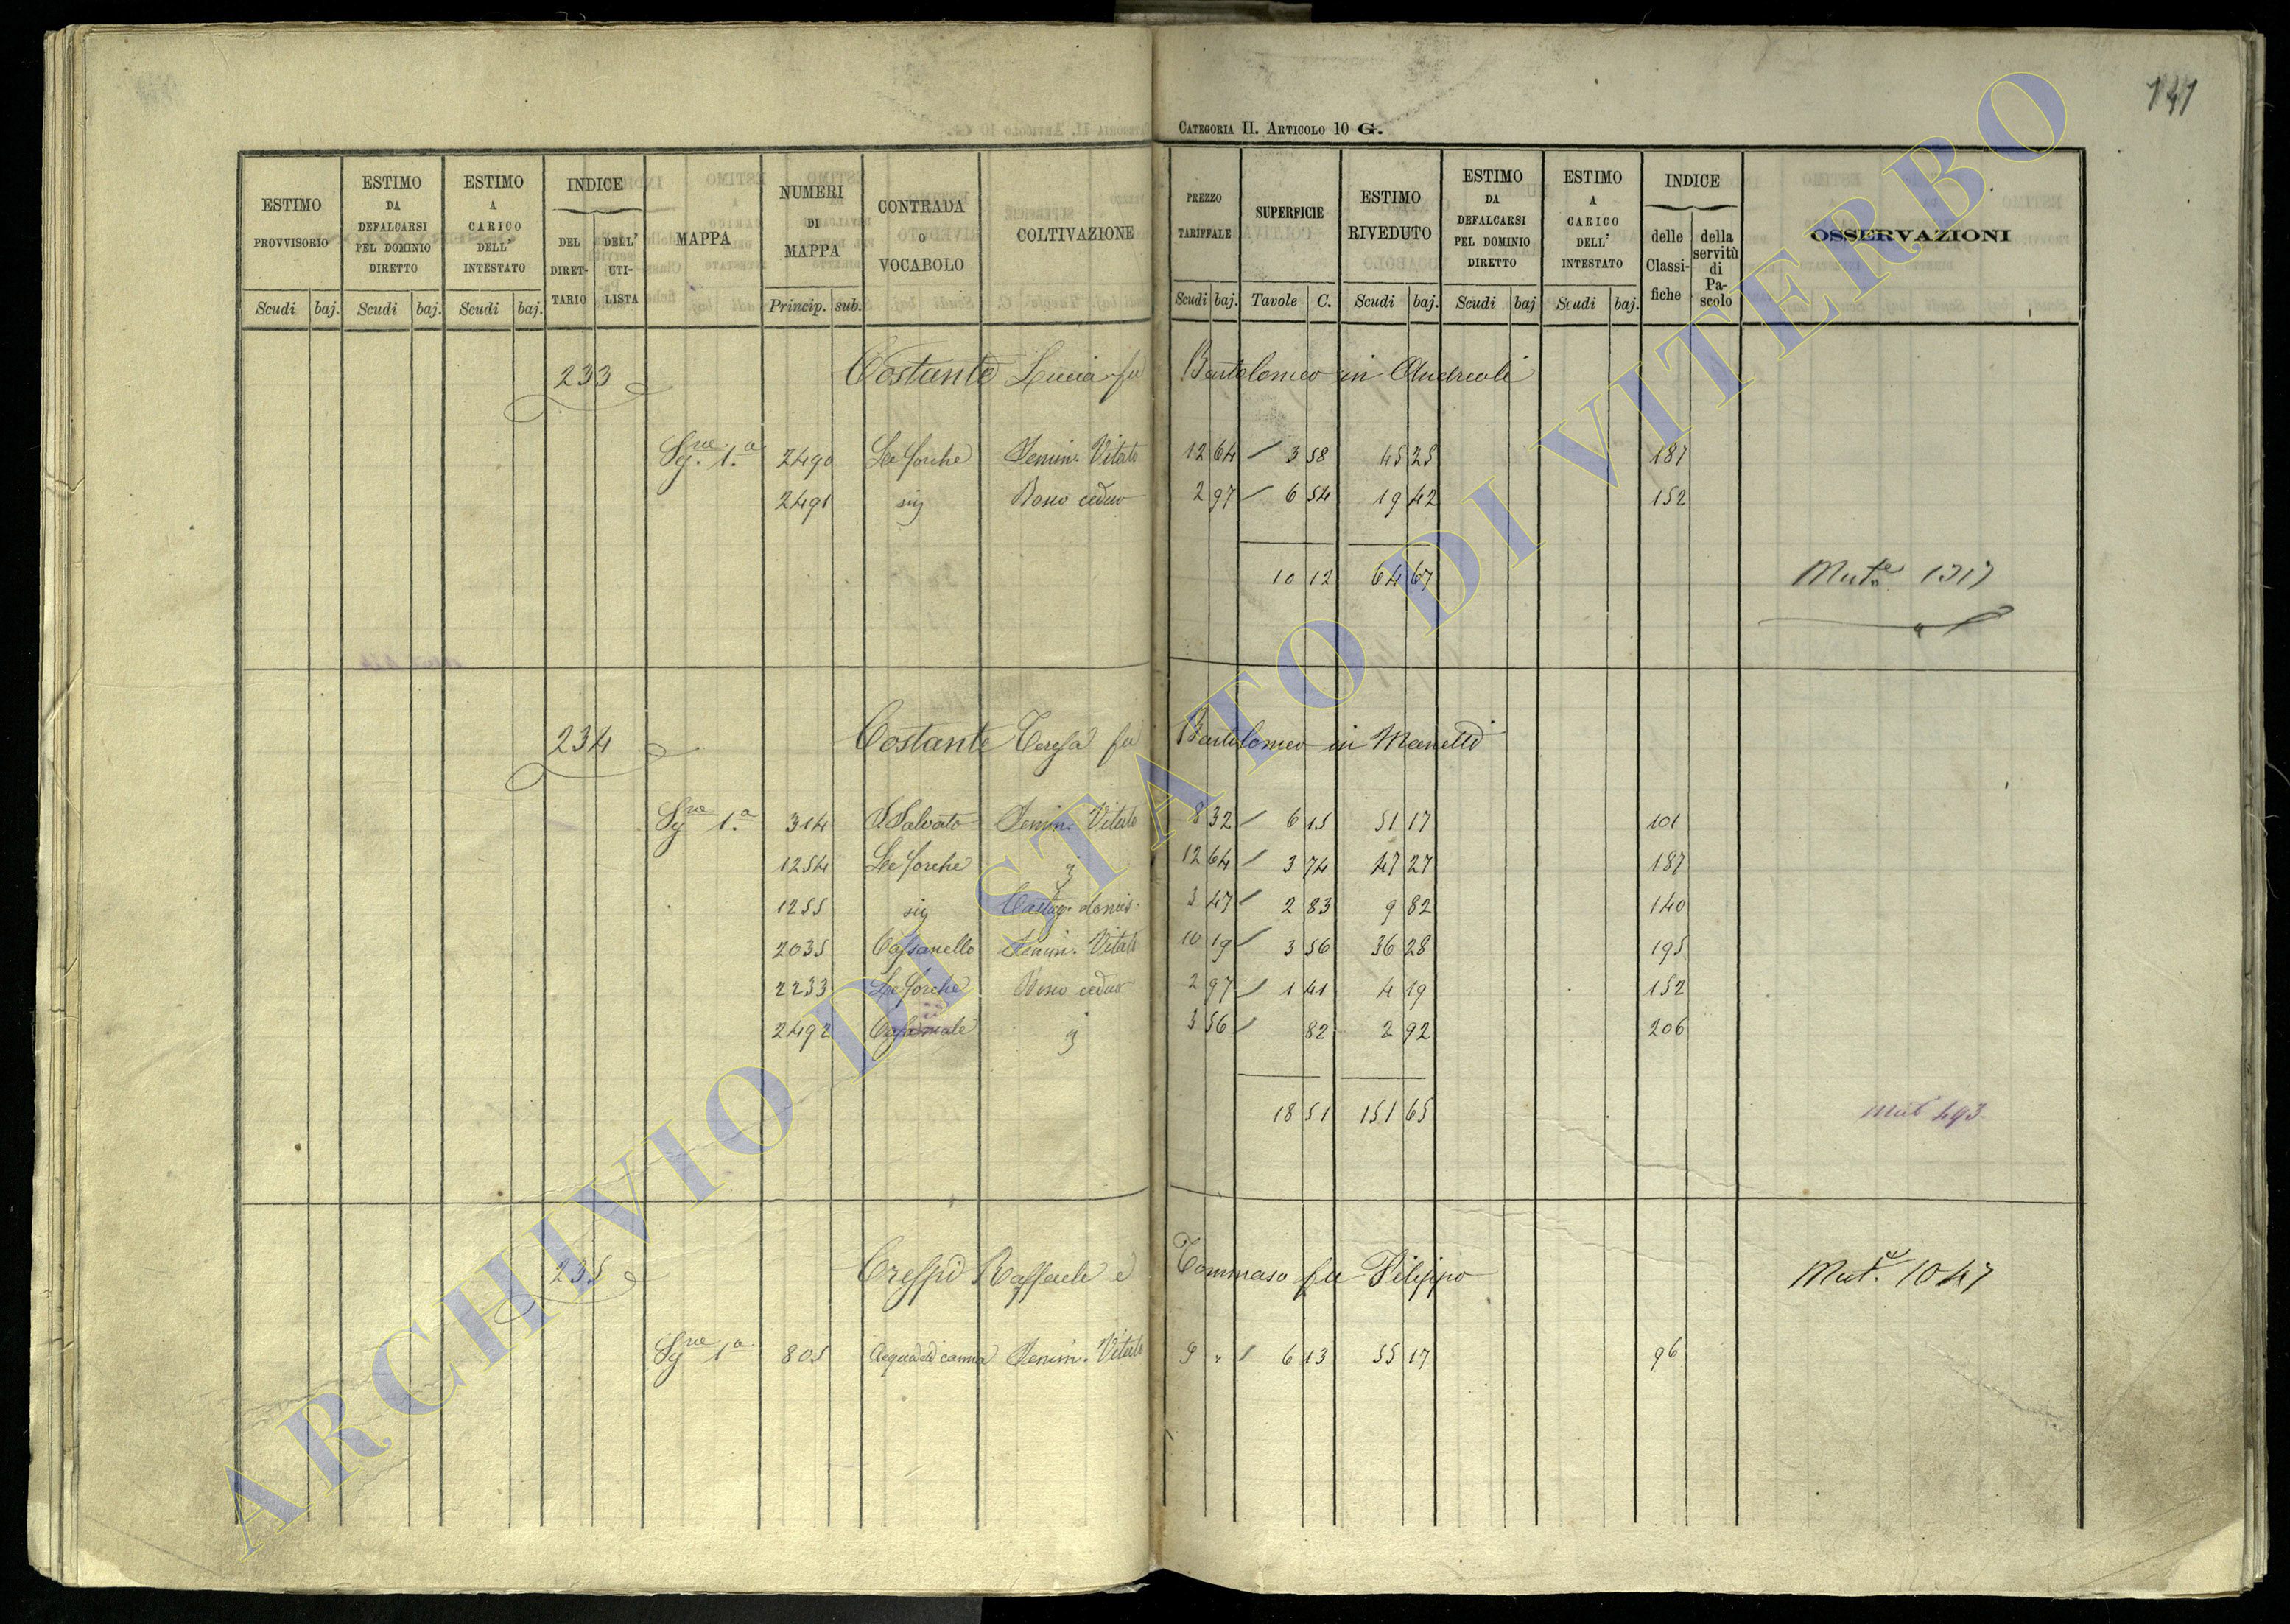 141
CATEGORIA II. ARTICOLO 10 G.
ESTIMO PROVVISORIO Scudi baj.
ESTIMO DA DEFALCARSI PEL DOMINIO DIRETTO Scudi baj.
ESTIMO A CARICO DELL' INTESTATO Scudi baj.
INDICE DEL DIRETTARIO DELL' UTILISTA
MAPPA
NUMERI DI MAPPA Princip. sub.
CONTRADA O VOCABOLO
COLTIVAZIONE
PREZZO TARIFFALE Scudi baj.
SUPERFICIE Tavole C.
ESTIMO RIVEDUTO Scudi baj.
ESTIMO DA DEFALCARSI PEL DOMINIO DIRETTO Scudi baj
ESTIMO A CARICO DELL' INTESTATO Scudi baj.
INDICE delle Classifiche della servitù di Pascolo
OSSERVAZIONI
233 Costante Lucia fu Bartolomeo in Andreoli
Sgne 1.a 2490 Le forche Semin. Vitato 12 64 / 3 58 45 25 187
2491 sig Bosco ceduo 2 97 / 6 54 19 42 152
10 12 64 67 Mut.e 1317
234 Costante Teresa fu Bartolomeo in Manetti
Sgne 1.a 314 S. Salvato Semin. Vitato 8 32 / 6 15 51 17 101
1254 Le forche 12 64 / 3 74 47 27 187
1255 sig Castag. domes. 3 47 / 2 83 9 82 140
2035 Cassanello Semin. Vitato 10 19 / 3 56 36 28 195
2233 Le forche Bosco ceduo 2 97 / 1 41 4 19 152
2492 3 56 / 82 2 92 206
18 51 151 65 Mut 493
235 Crespi Raffaele e Tommaso fu Filippo Mut.e 1047
Sgne 1a 805 Acqua di canna Semin. Vitato 9 " / 6 13 55 17 96
ARCHIVIO DI STATO DI VITERBO